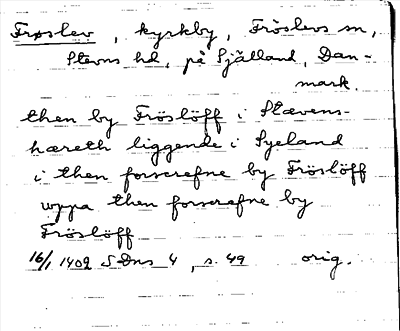 Frøslev, kyrkby, Fröslevs sn,
Stevns hd, på Själland, Dan-
mark.
then by Fröslöff i Stævens-
hæreth liggende i Syeland
i then forscrefne by Fröslöff
uppa then forscrefne by
Fröslöff
16/1 1402 SDns 4, s. 49 orig.